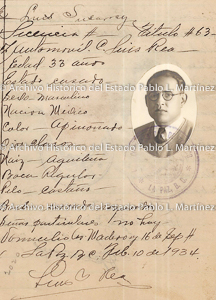 Luis
Licencia # Título # 63-
Automovil C. Luis Rea
Edad 33 años
Estado casado
Sexo Masculino
Nacion México
Color Apiñonado
© Archivo Histórico del Estado Pablo L. Martínez
Nariz Aguileña
Boca Regular
Pelo Castaño
LA PAZ, B. C.
© Archivo Histórico del Estado Pablo L. Martínez
Señas particulares no hay
Domicilio Madero y 16 de Sep #
La Paz B.C. Feb. 10 de 1934.
Luis Rea